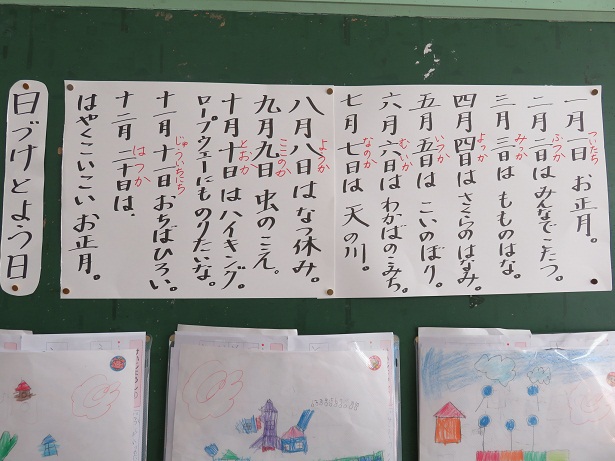 一月一日 お正月。
ついたち
二月二日は みんなでこたつ。
ふつか
三月三日は もものはな。
みっか
四月四日は さくらのはなみ。
よっか
五月五日は こいのぼり。
いつか
六月六日は わかばのこみち。
むいか
七月七日は 天の川。
なのか
八月八日は なつ休み。
ようか
九月九日 虫のこえ。
ここのか
十月十日は ハイキング。
とおか
ロープウェーにものりたいな。
十一月十一日 おちばひろい。
じゅういちにち
十二月二十日は、
はつか
はやくこいこい お正月。
日づけとよう日